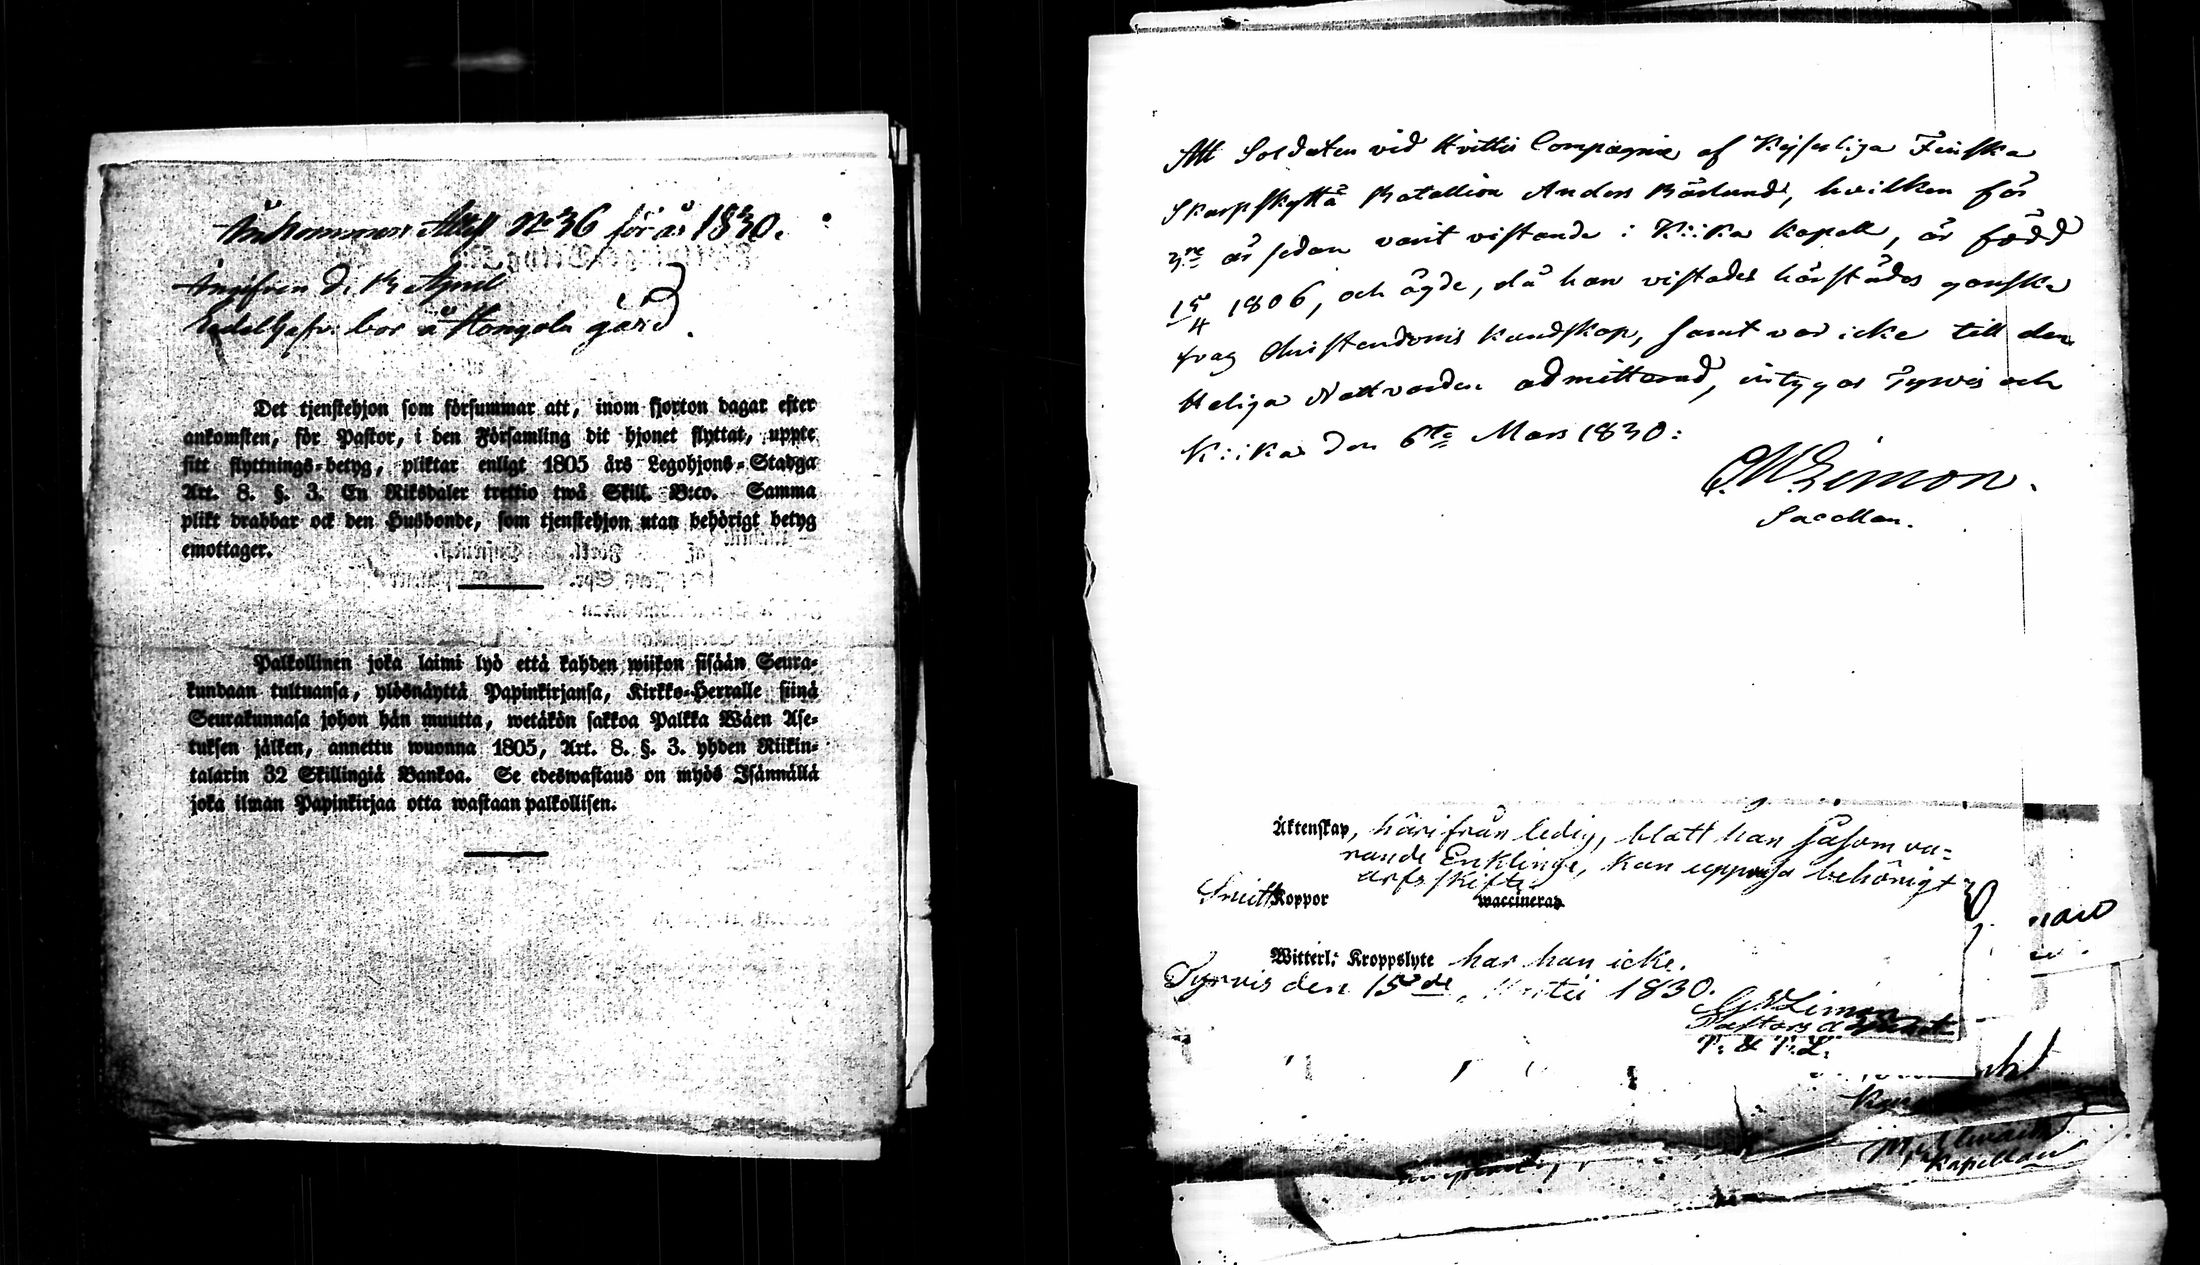 Ankommer Attest No 36 för år 1830.
d. 13 April
bor å Hongola gård.
Det tjenstehjon som försummar att, inom fjorton dagar efter
ankomsten, för Pastor, i den Församling dit hjonet flyttat, uppte
sitt flyttnings-betyg, pliktar enligt 1805 års Legohjons-Stadga
Art. 8. §. 3. En Riksdaler trettio twå Skill. B:co. Samma
plikt drabbar ock den Husbonde, som tjenstehjon utan behörigt betyg
emottager.
Palkollinen joka laimi lyö että kahden wiikon sisään Seura-
kundaan tultuansa, ylösnäyttä Papinkirjansa, Kirkko-Herralle siinä
Seurakunnasa johon hän muutta, wetäkön sakkoa Palkka Wäen Ase-
tuksen jälken, annettu wuonna 1805, Art. 8. §. 3. yhden Riikin-
talarin 32 Skillingiä Bankoa. Se edeswastaus on myös Isännällä
joka ilman Papinkirjaa otta wastaan palkollisen.
Att Soldaten vid Hvittis Compagnie af Kejserliga Finska
Skarpskytte Batallion Anders Bärlund, hvilken för
3ne år sedan varit vistande i Kiika kapell, är född
15/4 1806, och ägde, då han vistades härstädes ganska
svag Christendoms kundskap, samt var icke till den
Heliga Nattvarden admitterad, intygas Tyrvis och
Kiika den 6te Mars 1830:
Limon.
Sacellan.
Äktenskap, härifrån ledig, blott han såsom va=
rande Enkling, kan uppvisa behörigt
arfsskifte.
Smittkoppor waccinerad
Witterl: Kroppslyte har han icke.
Tyrvis den 15de Martii 1830.
Limon
Pastors adjunct
T. & T. L.
Kapellan